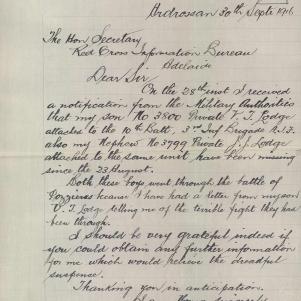 Ardrossan 30th Septr 1916.
The Hon Secretary
Red Cross Information Bureau
Adelaide
Dear Sir
On the 28th inst I received
a notification from the Military Authorities
that my son No 3800 Private V. J. Lodge
attached to the 10th Batt, 3rd Inf Brigade A.I.F.
also my Nephew No 3799 Private J. Lodge
attached to the same unit have been missing
since the 23 August.
Both these boys went through the battle of
Pozzieres because I have had a letter from my son
V. J. Lodge telling me of the terrible fight they had
been through.
I should be very grateful indeed if
you could obtain any further information
for me which would relieve the dreadful
suspense.
Thanking you in anticipation.